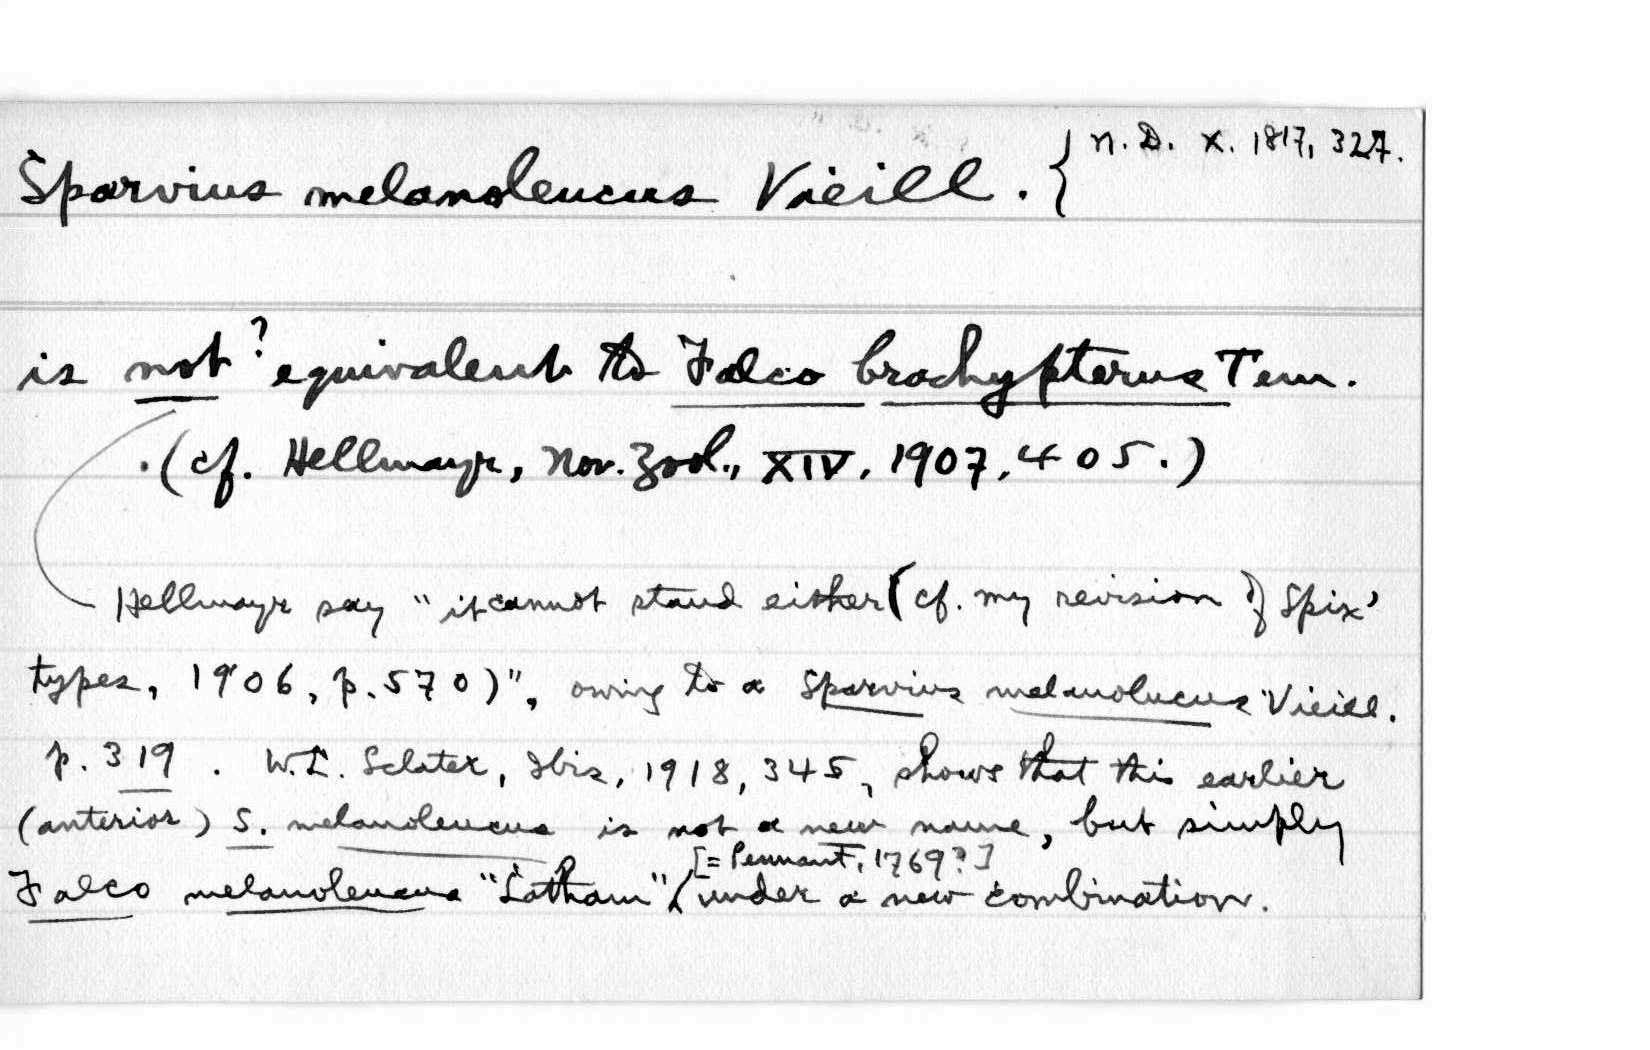 Sparvius melanoleucus Vieill. { N. D. X. 1817, 327.
is not? equivalent to Falco brachypterus Tem.
(cf. Hellmayr, Nov. Zool., XIV, 1907, 405.)
Hellmayr say "it cannot stand either (cf. my revision of Spix'
types, 1906, p. 570)", owing to a Sparvius melanolucus Vieill.
p. 319. W. L. Sclater, Ibis, 1918, 345, shows that this earlier
(anterior) S. melanoleucus is not a new name, but simply
[= Pennant, 1769?]
Falco melanoleucus "Latham", under a new combination.